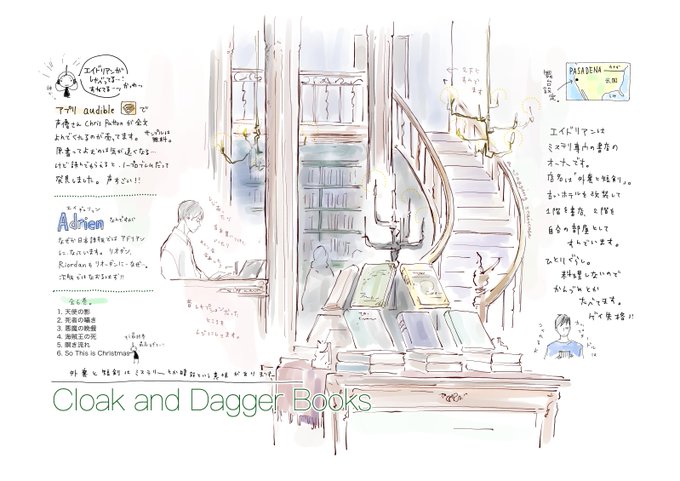 エイドリアンが
しゃべってるー!
すわてるーっ
アプリ audible で
声優さん Chris Patton が全文
よんでくれるのが聞けます。
サンプルは
無料。
原書ってよむのは気が遠くなる…
けど読んでもらえると、
発見しました。声すごい!!
エイドリアン
Adrien なんですが
なぜか日本語版ではアドリアン
になっています。リオダン、
Riordanもリオーダンに…なぜ…。
全6巻。
1. 天使の影
2. 死者の囁き
3. 悪魔の晩餐
4. 海賊王の死
5. 瞑き流れ
6. So This is Christmas
昔
レセプションだった
ところを
レジにしてます。
舞台設定。
PASADENA
エイドリアンは
ミステリ専門の書店の
オーナーです。
店名は「外套と短剣」。
古いホテルを改装して
1階を書店、2階を
自分の部屋として
すんでいます。
ひとりぐらし。
料理しないので
かんづめとか
たべてます。
ゲイ失格!!
外套と短剣はミステリーとか
意味があります。
Cloak and Dagger Books